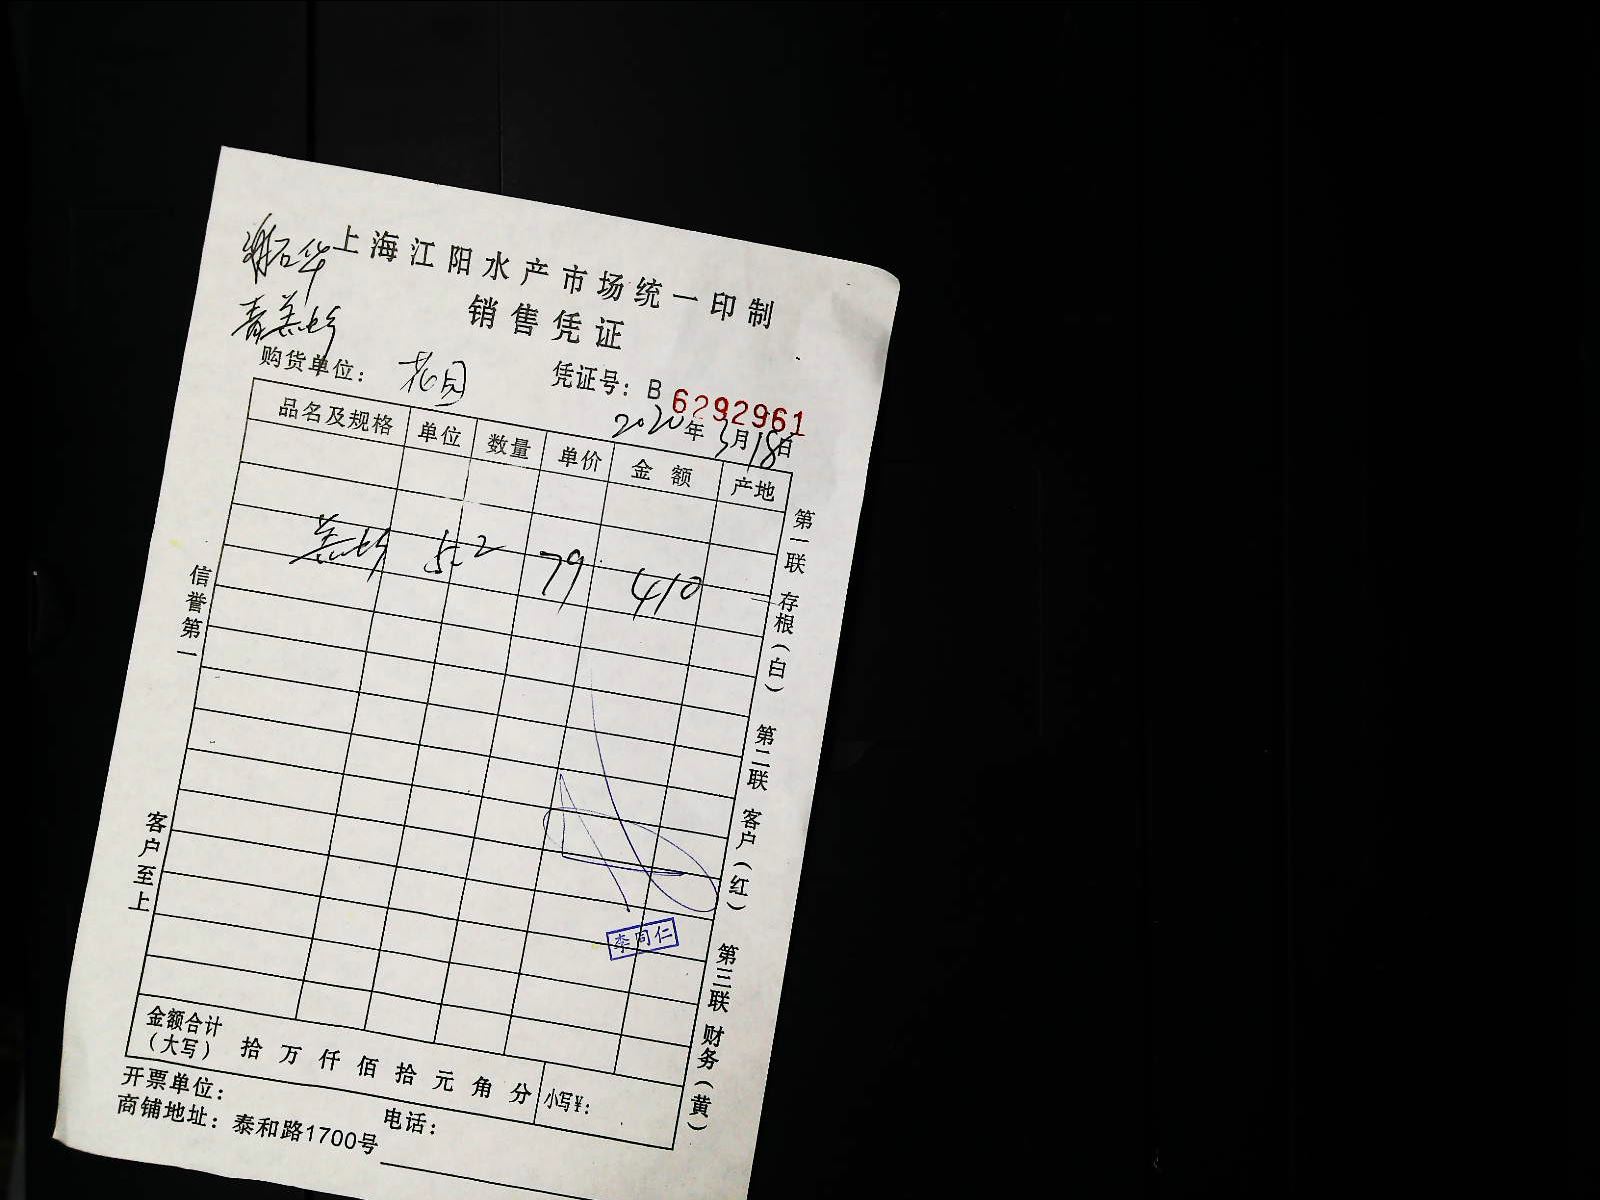 上海江阳水产市场统一印制
销售凭证
购货单位： 花园
凭证号：B 6292961
2020年3月18日
品名及规格 单位 数量 单价 金额 产地
5.2 79 410
信誉第一
客户至上
第一联 存根（白）
第二联 客户（红）
第三联 财务（黄）
李同仁
金额合计（大写） 拾 万 仟 佰 拾 元 角 分 小写¥：
开票单位：
电话：
商铺地址：泰和路1700号